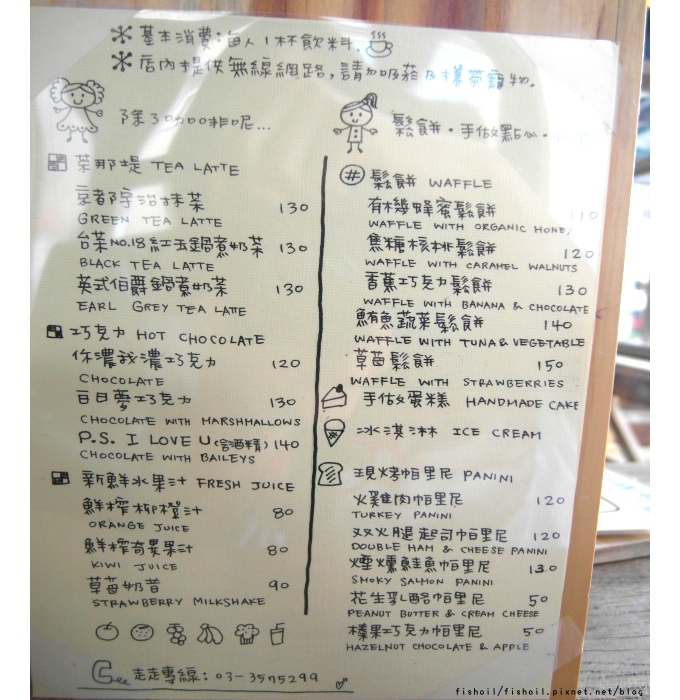 基本消費:每人1杯飲料.
店內提供無線網路,請勿吸菸及攜帶寵物.
除了咖啡呢...
茶那堤 TEA LATTE
京都宇治抹茶 130
GREEN TEA LATTE
台茶NO.18紅玉鍋煮奶茶 130
BLACK TEA LATTE
英式伯爵鍋煮奶茶 130
EARL GREY TEA LATTE
巧克力 HOT CHOCOLATE
你濃我濃巧克力 120
CHOCOLATE
白日夢巧克力 130
CHOCOLATE WITH MARSHMALLOWS
P.S. I LOVE U(含酒精) 140
CHOCOLATE WITH BAILEYS
新鮮水果汁 FRESH JUICE
鮮榨柳橙汁 80
ORANGE JUICE
鮮榨奇異果汁 80
KIWI JUICE
草莓奶昔 90
STRAWBERRY MILKSHAKE
走走專線:03-3575299
鬆餅.手做點心.
# 鬆餅 WAFFLE
有機蜂蜜鬆餅 110
WAFFLE WITH ORGANIC HONEY
焦糖核桃鬆餅 120
WAFFLE WITH CARAMEL WALNUTS
香蕉巧克力鬆餅 130
WAFFLE WITH BANANA & CHOCOLATE
鮪魚蔬菜鬆餅 140
WAFFLE WITH TUNA & VEGETABLE
草莓鬆餅 150
WAFFLE WITH STRAWBERRIES
手做蛋糕 HANDMADE CAKE
冰淇淋 ICE CREAM
現烤帕里尼 PANINI
火雞肉帕里尼 120
TURKEY PANINI
双火腿起司帕里尼 120
DOUBLE HAM & CHEESE PANINI
煙燻鮭魚帕里尼 130
SMOKY SALMON PANINI
花生乳酪帕里尼 50
PEANUT BUTTER & CREAM CHEESE
榛果巧克力帕里尼 50
HAZELNUT CHOCOLATE & APPLE
fishoil/fishoil.pixnet.net/blog